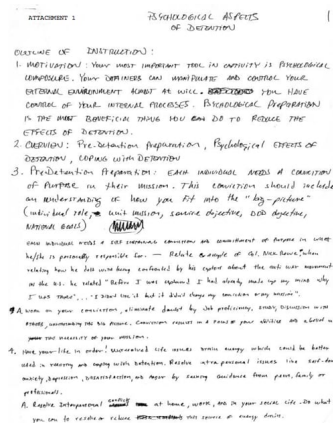 ATTACHMENT 1
PSYCHOLOGICAL ASPECTS
OF DETENTION
1
OUTLINE OF INSTRUCTION:
1. MOTIVATION: YOUR MOST IMPORTANT TOOL IN CAPTIVITY IS PSYCHOLOGICAL
COMPOSURE. YOUR DETAINERS CAN MANIPULATE AND CONTROL YOUR
EXTERNAL ENVIRONMENT ALMOST AT WILL. YOU HAVE
CONTROL OF YOUR INTERNAL PROCESSES. PSYCHOLOGICAL PREPARATION
IS THE MOST BENEFICIAL THING YOU CAN DO TO REDUCE THE
EFFECTS OF DETENTION.
2. OVERVIEW: Pre-Detention Preparation, Psychological EFFECTS OF
DETENTION, COPING WITH DETENTION
3. PreDetention Preparation: EACH INDIVIDUAL NEEDS A CONVICTION
OF PURPOSE in their mission. This conviction should include
an understanding of how you fit into the "big-picture"
(individual role, unit mission, service objective, DOD objective,
NATIONAL GOALS)
EACH INDIVIDUAL NEEDS A CONVICTION AND COMMITMENT OF PURPOSE IN WHAT
he/she is personally responsible for. — Relate example of Col. Nick Rowe, when
relating how he felt being confronted by his captors about the anti war movement
in the U.S. he related "Before I was captured I had already made up my mind why
I was there"... "I didn't like it but it didn't change my conviction in my mission".
A. Work on your conviction, eliminate doubt by job proficiency, study, DISCUSSION WITH
OTHERS, UNDERSTANDING THE BIG PICTURE. CONVICTION RESULTS IN A your abilities and a belief in
THE your mission.
4. Have your life in order! Unresolved life issues drain energy which could be better
used in resisting and coping with detention. Resolve intra personal issues like
anxiety, depression, DISSATISFACTION, and anger by seeking guidance from peers, family or
professionals.
A. Resolve Interpersonal at home, work, and in your social life. Do what
you can to resolve or reduce this source of energy drain.